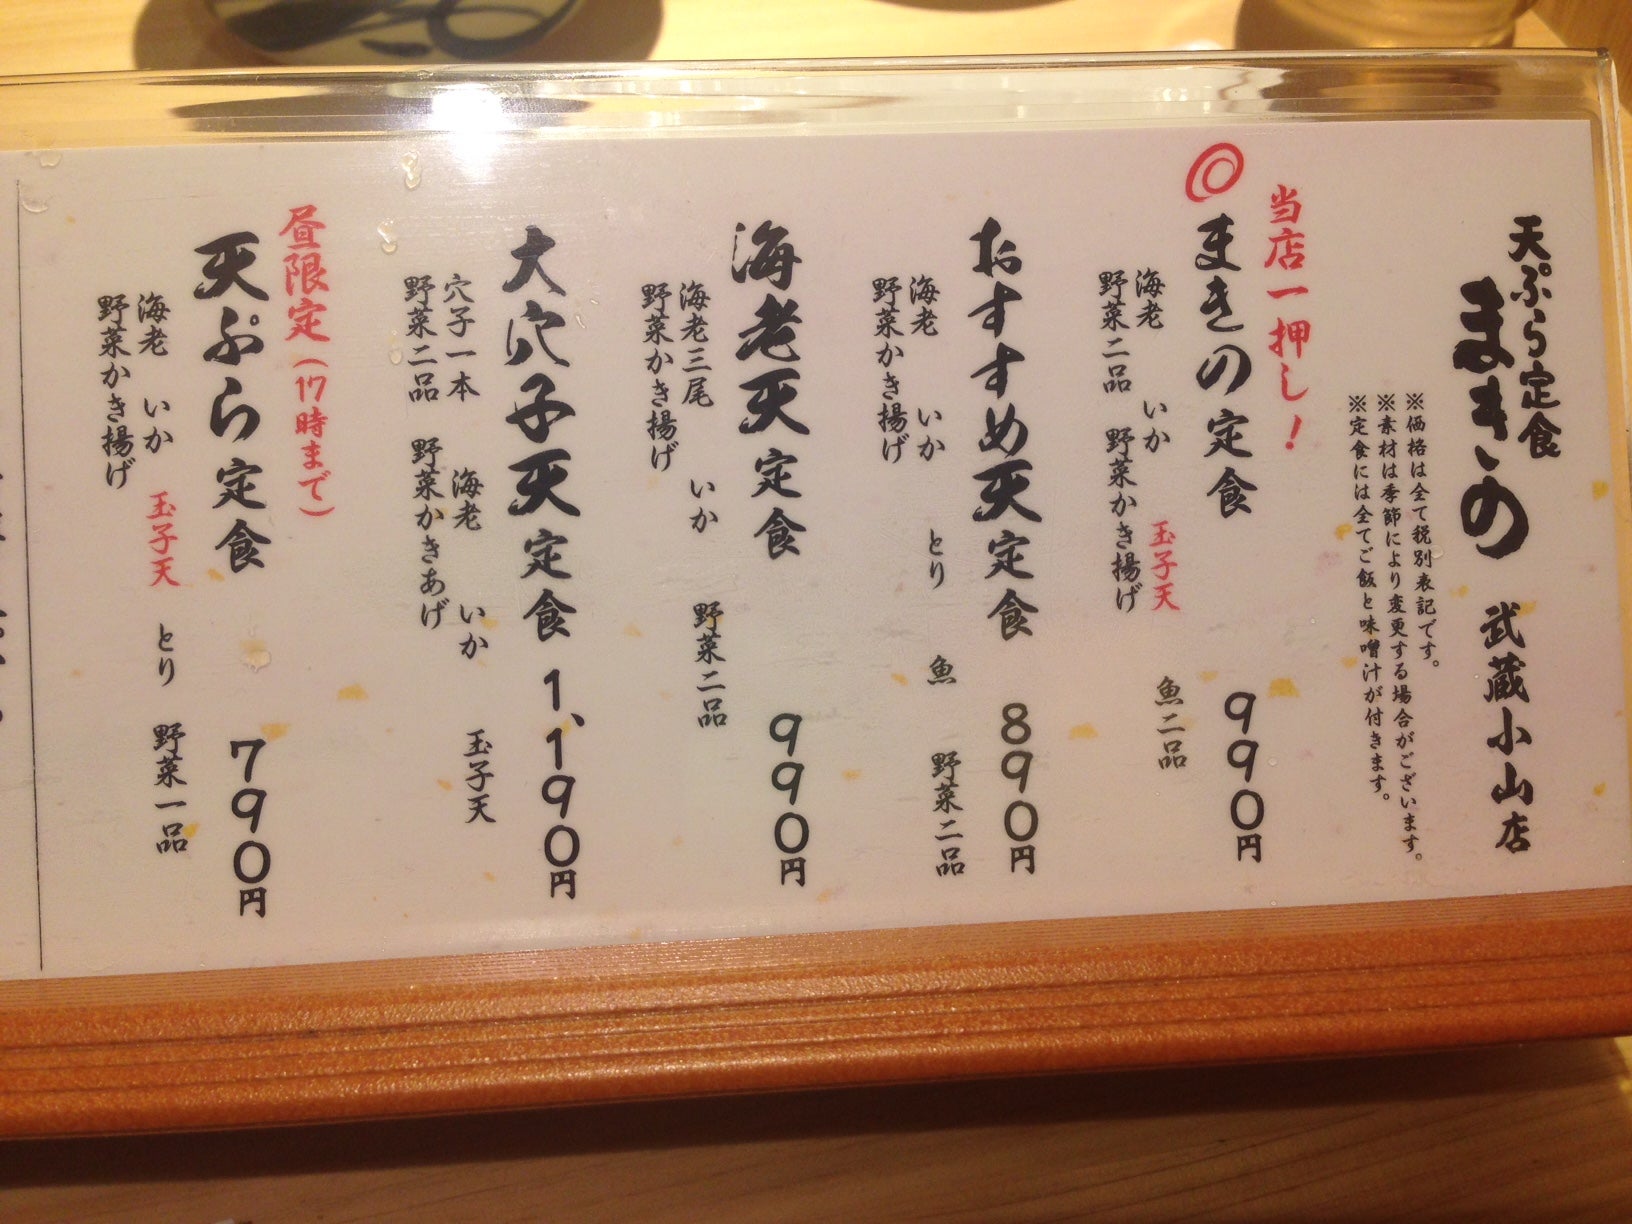 天ぷら定食
まきの 武蔵小山店
※価格は全て税別表記です。
※素材は季節により変更する場合がございます。
※定食には全てご飯と味噌汁が付きます。
当店一押し！
◎まきの定食 990円
海老 いか 玉子天 魚二品
野菜二品 野菜かき揚げ
おすすめ天定食 890円
海老 いか とり 魚 野菜二品
野菜かき揚げ
海老天定食 990円
海老三尾 いか 野菜二品
野菜かき揚げ
大穴子天定食 1、190円
穴子一本 海老 いか 玉子天
野菜二品 野菜かきあげ
昼限定（17時まで）
天ぷら定食 790円
海老 いか 玉子天 とり 野菜一品
野菜かき揚げ